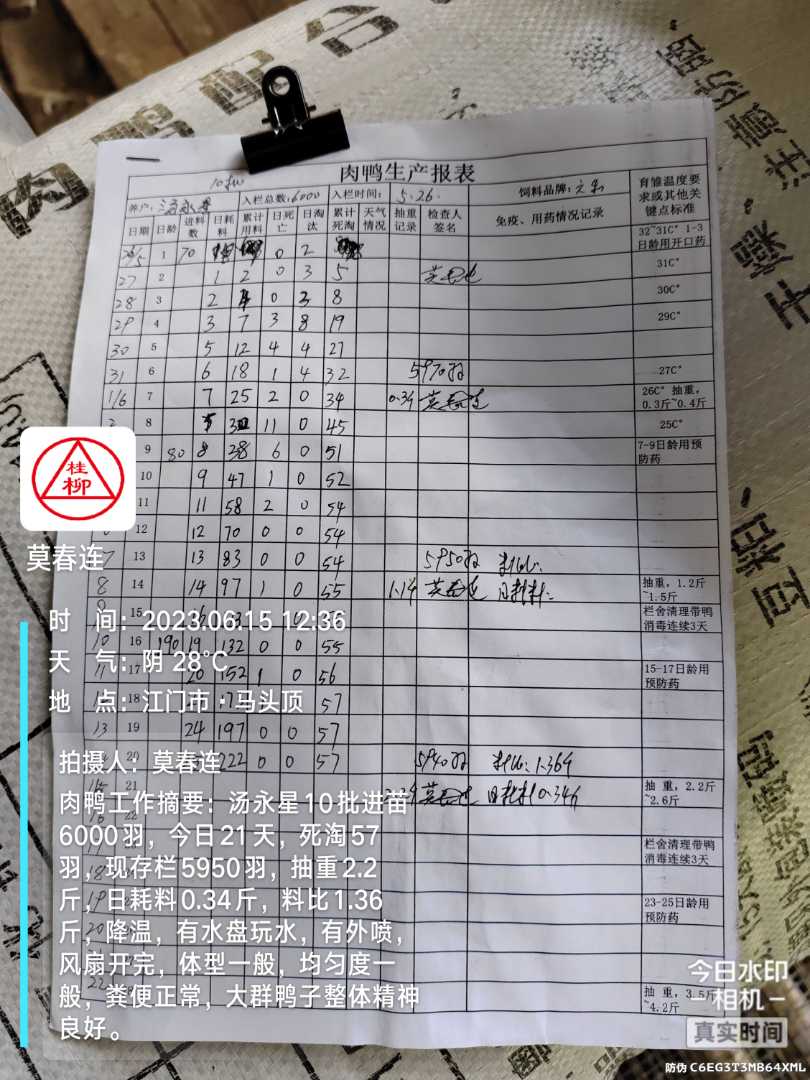 肉鸭配合
肉鸭生产报表
10批
养户: 汤永星 入栏总数: 6000 入栏时间: 5.26. 饲料品牌:
育雏温度要求或其他关键点标准
日期 日龄 进料数 日耗料 累计用料 日死亡 日淘汰 累计死淘 天气情况 抽重记录 检查人签名 免疫、用药情况记录
26/5 1 70 0 2 32~31C° 1-3日龄用开口药
27 2 1 2 0 3 5 莫春连 31C°
28 3 2 4 0 3 8 30C°
29 4 3 7 3 8 19 29C°
30 5 5 12 4 4 27
31 6 6 18 1 4 32 5970羽 27C°
1/6 7 7 25 2 0 34 0.34 莫春连 26C° 抽重,0.3斤~0.4斤
2 8 5 30 11 0 45 25C°
9 80 8 38 6 0 51 7-9日龄用预防药
10 9 47 1 0 52
11 11 58 2 0 54
12 12 70 0 0 54
7 13 13 83 0 0 54 5950羽 料比:
8 14 14 97 1 0 55 1.14 莫春连 日耗料: 抽重,1.2斤~1.5斤
9 15 栏舍清理带鸭消毒连续3天
10 16 190 19 132 0 0 55
11 17 20 152 1 0 56 15-17日龄用预防药
18 57
13 19 24 197 0 0 57
20 222 0 0 57 5940羽 料比:1.364
21 莫春连 日耗料0.346 抽重,2.2斤~2.6斤
22
栏舍清理带鸭消毒连续3天
23-25日龄用预防药
抽重,3.5斤~4.2斤
桂柳
莫春连
时 间:2023.06.15 12:36
天 气:阴 28℃
地 点:江门市·马头顶
拍摄人:莫春连
肉鸭工作摘要:汤永星10批进苗
6000羽,今日21天,死淘57
羽,现存栏5950羽,抽重2.2
斤,日耗料0.34斤,料比1.36
斤,降温,有水盘玩水,有外喷,
风扇开完,体型一般,均匀度一
般,粪便正常,大群鸭子整体精神
良好。
今日水印
相机
真实时间
防伪 C6EG3T3MB64XML